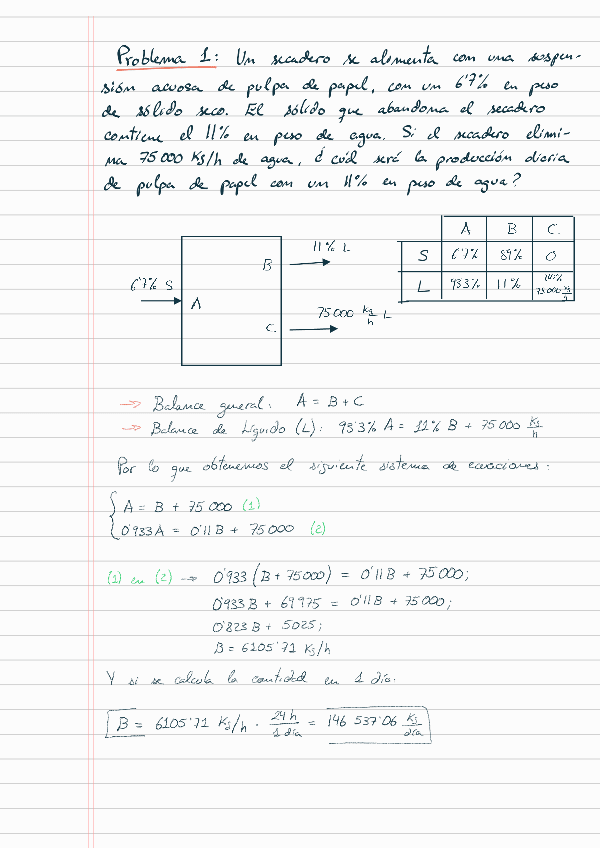 Problema 1: Un secadero se alimenta con una suspen-
sión acuosa de pulpa de papel, con un 6'7% en peso
de sólido seco. El sólido que abandona el secadero
contiene el 11% en peso de agua. Si el secadero elimi-
na 75000 Kg/h de agua, ¿cuál será la producción diaria
de pulpa de papel con un 11% en peso de agua?
A B C.
S 6'7% 89% 0
L 93'3% 11% 75000 Kg/h
6'7% S
A
B
11% L
C.
75000 Kg/h L
→ Balance general: A = B + C
→ Balance de Líquido (L): 93'3% A = 11% B + 75000 Kg/h
Por lo que obtenemos el siguiente sistema de ecuaciones:
A = B + 75000 (1)
0'933A = 0'11B + 75000 (2)
(1) en (2) → 0'933 (B + 75000) = 0'11B + 75000;
0'933B + 69975 = 0'11B + 75000;
0'823B + 5025;
B = 6105'71 Kg/h
Y si se calcula la cantidad en 1 día.
B = 6105'71 Kg/h · 24h/1 día = 146 537'06 Kg/día